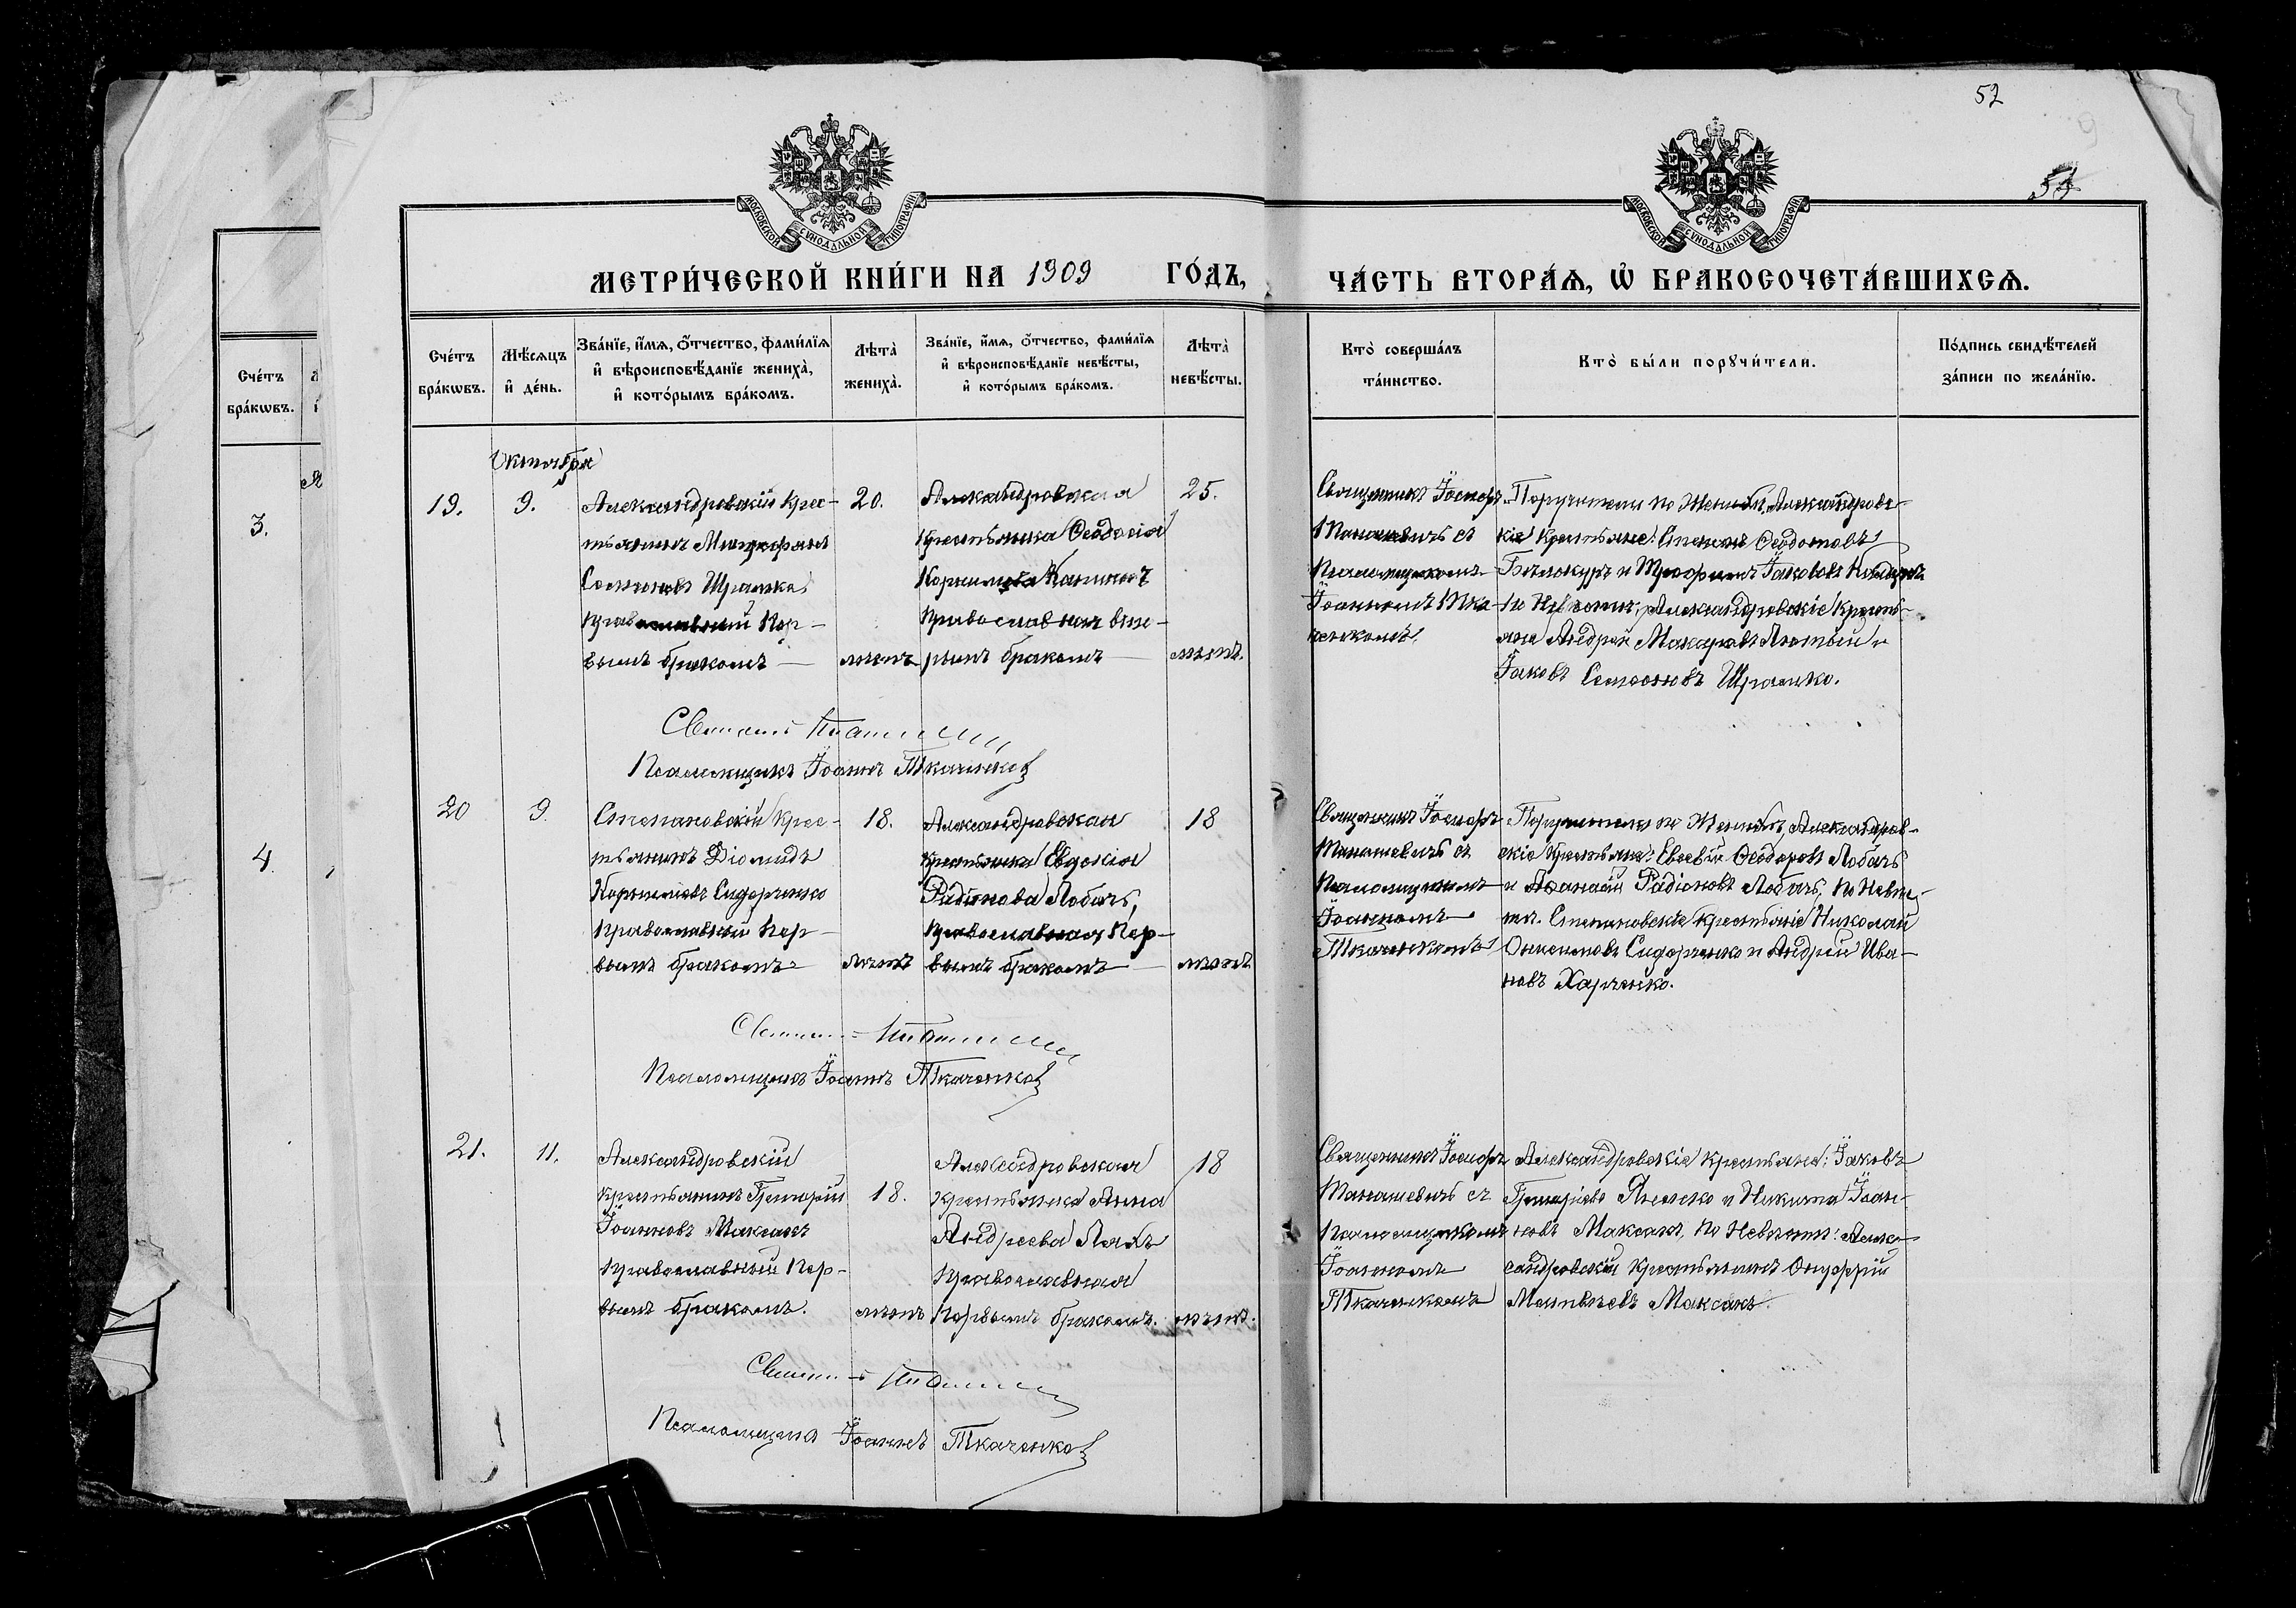 52
МОСКОВСКОЙ СУНОДАЛЬНОЙ ТИПОГРАФІИ
МОСКОВСКОЙ СУНОДАЛЬНОЙ ТИПОГРАФІИ
МЕТРИ́ЧЕСКОЙ КНИ́ГИ НА 1909 ГО́ДЪ,
ЧА́СТЬ ВТОРА́Ѧ, Ѡ҆ БРАКОСОЧЕТА́ВШИХСѦ.
Сче́тъ бра́кѡвъ.
Сче́тъ бра́кѡвъ.
Мѣ́сѧцъ и҆ де́нь.
Зва́нїе, и҆́мѧ, ѻ҆́тчество, фами́лїѧ
и҆ вѣроисповѣ́данїе жениха̀,
и҆ кото́рымъ бра́комъ.
Лѣта̀ жениха̀.
Зва́нїе, и҆́мѧ, ѻ҆́тчество, фами́лїѧ
и҆ вѣроисповѣ́данїе невѣ́сты,
и҆ кото́рымъ бра́комъ.
Лѣта̀ невѣ́сты.
Кто̀ соверша́лъ
та́инство.
Кто̀ бы́ли порꙋчи́тели.
По́дпись свидѣ́телей
за́писи по жела́нїю.
3.
4.
Октября
19.
9.
Александровскій крес-
тьянинъ Митрофанъ
Семеновъ Шрамко,
православный пер-
вымъ бракомъ
20.
лѣтъ
Александровская
крестьянка Ѳеодосія
Корнилова
православная вто-
рымъ бракомъ
25.
лѣтъ.
Священникъ Іосифъ
Манашевичъ съ
псаломщикомъ
Іоанномъ Тка-
ченкомъ.
Поручители по женихѣ, Александровс-
кіе крестьяне: Степанъ Ѳеодотовъ
Бѣлокуръ и Трофимъ Іакововъ
по невѣстѣ, Александровскіе кресть-
яне Андрей Макаровъ Лютый и
Іаковъ Семеоновъ Шрамко.
Псаломщикъ Іоаннъ Ткаченко
20
9.
Степановскій крес-
тьянинъ Діомидъ
Корниліевъ Сидоренко
православный пер-
вымъ бракомъ
18.
лѣтъ
Александровская
крестьянка Евдокія
Радіонова Лобачъ,
православная пер-
вымъ бракомъ
18
лѣтъ
Священникъ Іосифъ
Манашевичъ съ
псаломщикомъ
Іоанномъ
Ткаченкомъ
Поручители по женихѣ, Александров-
скіе крестьяне: Евсевій Ѳеодоровъ Лобачъ
и Аѳанасій Радіоновъ Лобачъ, по невѣс-
тѣ. Степановскіе крестьяне Николай
Онисимовъ Сидоренко и Андрей Ива-
новъ Харченко.
Псаломщикъ Іоаннъ Ткаченко
21.
11.
Александровскій
крестьянинъ Григорій
Іоанновъ Максакъ
православный пер-
вымъ бракомъ.
18.
лѣтъ
Александровская
крестьянка Анна
Андреева Ляхъ
православная
первымъ бракомъ.
18
лѣтъ.
Священникъ Іосифъ
Манашевичъ съ
псаломщикомъ
Іоанномъ
Ткаченкомъ
Александровскіе крестьяне: Іаковъ
Григоріевъ и Никита Іоан-
новъ Максакъ, по невѣстѣ: Алек-
сандровскій крестьянинъ Онуфрій
Матвѣевъ Максакъ.
Псаломщикъ Іоаннъ Ткаченко